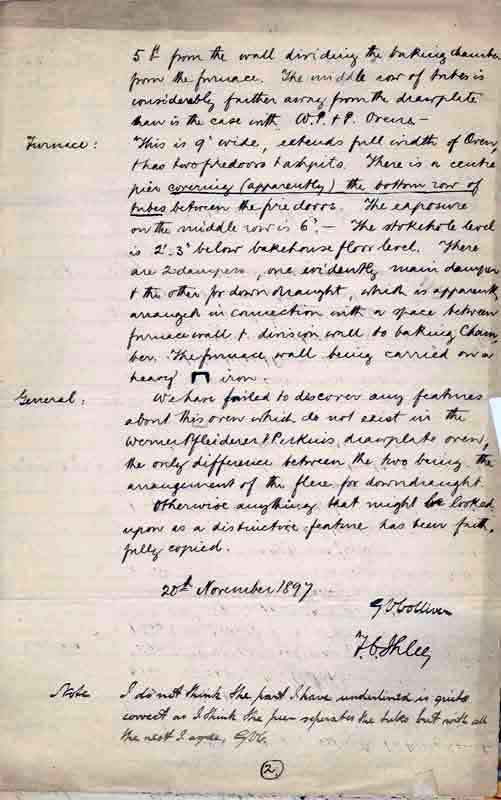 5 ft from the wall dividing the baking chamber
from the furnace. The middle row of tubes is
considerably further away from the drawplate
than is the case with W.P. & P. Ovens –
Furnace: This is 9' wide, extends full width of Oven,
& has two firedoors & ashpits. There is a centre
pier covering (apparently) the bottom row of
tubes between the fire doors. The exposure
on the middle row is 6'. – The stokehole level
is 2'. 3" below bakehouse floor level. There
are 2 dampers, one evidently main damper
& the other for down draught, which is apparently
arranged in connection with a space between
furnace wall & division wall to baking Cham-
ber. The furnace wall being carried on a
heavy iron.
General: We have failed to discover any features
about this oven which do not exist in the
Werner Pfleiderer & Perkins drawplate oven,
the only difference between the two being the
arrangement of the flue for downdraught.
Otherwise anything that might be looked
upon as a distinctive feature has been faith-
fully copied.
20th November 1897
Note I do not think the part I have underlined is quite
correct as I think the pier seperates the tubes but with all
the rest I agree,
2.